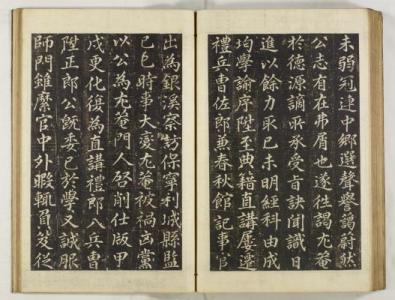 未弱冠連中鄉選聲譽藹蔚然
公志有在弗屑也遂徃謁尤菴
於德源謫所承受旨訣聞識日
進以餘力取己未明經科由成
均學諭序陞至典籍直講屢遷
禮兵曹佐郎兼春秋館記事官
出為銀溪察訪保寧利城縣監
己巳時事大變尤菴被禍凶黨
以公為尤菴門人啓削仕版甲
戌更化復為直講禮郎入兵曹
陞正郎公旣委己於學又誠服
師門雖縻官中外暇輒負笈從